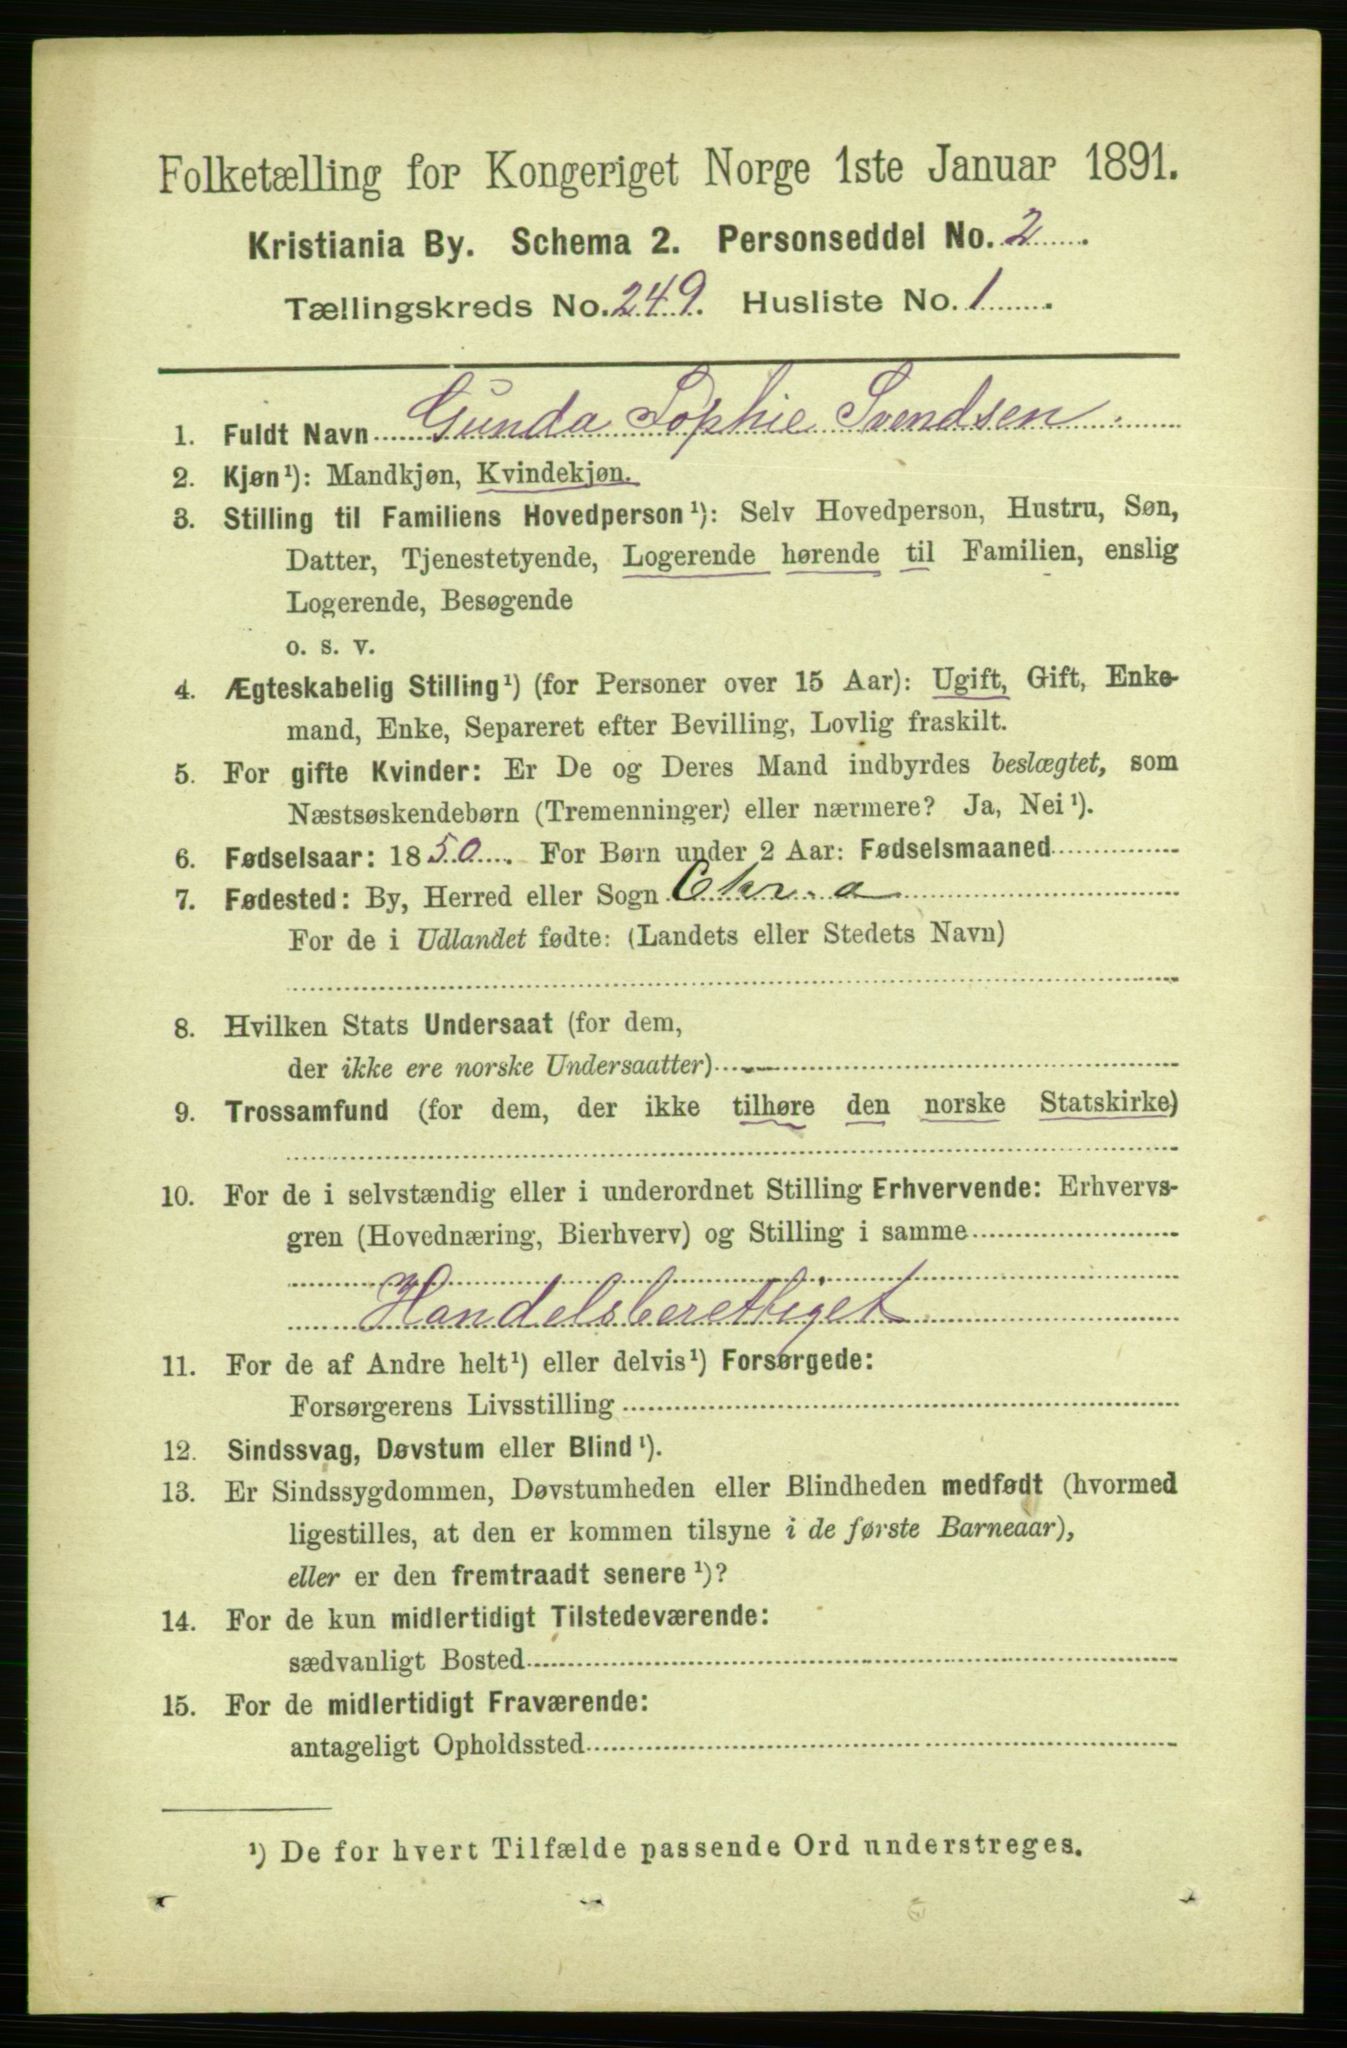 Folketælling for Kongeriget Norge 1ste Januar 1891.
Kristiania By. Schema 2. Personseddel No. 2
Tællingskreds No. 249. Husliste No. 1
1. Fuldt Navn Gunda Sophie Svendsen.
2. Kjøn¹): Mandkjøn, Kvindekjøn.
3. Stilling til Familiens Hovedperson¹): Selv Hovedperson, Hustru, Søn,
Datter, Tjenestetyende, Logerende hørende til Familien, enslig
Logerende, Besøgende
o. s. v.
4. Ægteskabelig Stilling¹) (for Personer over 15 Aar): Ugift, Gift, Enke-
mand, Enke, Separeret efter Bevilling, Lovlig fraskilt.
5. For gifte Kvinder: Er De og Deres Mand indbyrdes beslægtet, som
Næstsøskendebørn (Tremenninger) eller nærmere? Ja, Nei¹).
6. Fødselsaar: 1850. For Børn under 2 Aar: Fødselsmaaned
7. Fødested: By, Herred eller Sogn Chr.a
For de i Udlandet fødte: (Landets eller Stedets Navn)
8. Hvilken Stats Undersaat (for dem,
der ikke ere norske Undersaatter)
9. Trossamfund (for dem, der ikke tilhøre den norske Statskirke)
10. For de i selvstændig eller i underordnet Stilling Erhvervende: Erhvervs-
gren (Hovednæring, Bierhverv) og Stilling i samme
Handelsberettiget
11. For de af Andre helt¹) eller delvis¹) Forsørgede:
Forsørgerens Livsstilling
12. Sindssvag, Døvstum eller Blind¹).
13. Er Sindssygdommen, Døvstumheden eller Blindheden medfødt (hvormed
ligestilles, at den er kommen tilsyne i de første Barneaar),
eller er den fremtraadt senere¹)?
14. For de kun midlertidigt Tilstedeværende:
sædvanligt Bosted
15. For de midlertidigt Fraværende:
antageligt Opholdssted
¹) De for hvert Tilfælde passende Ord understreges.